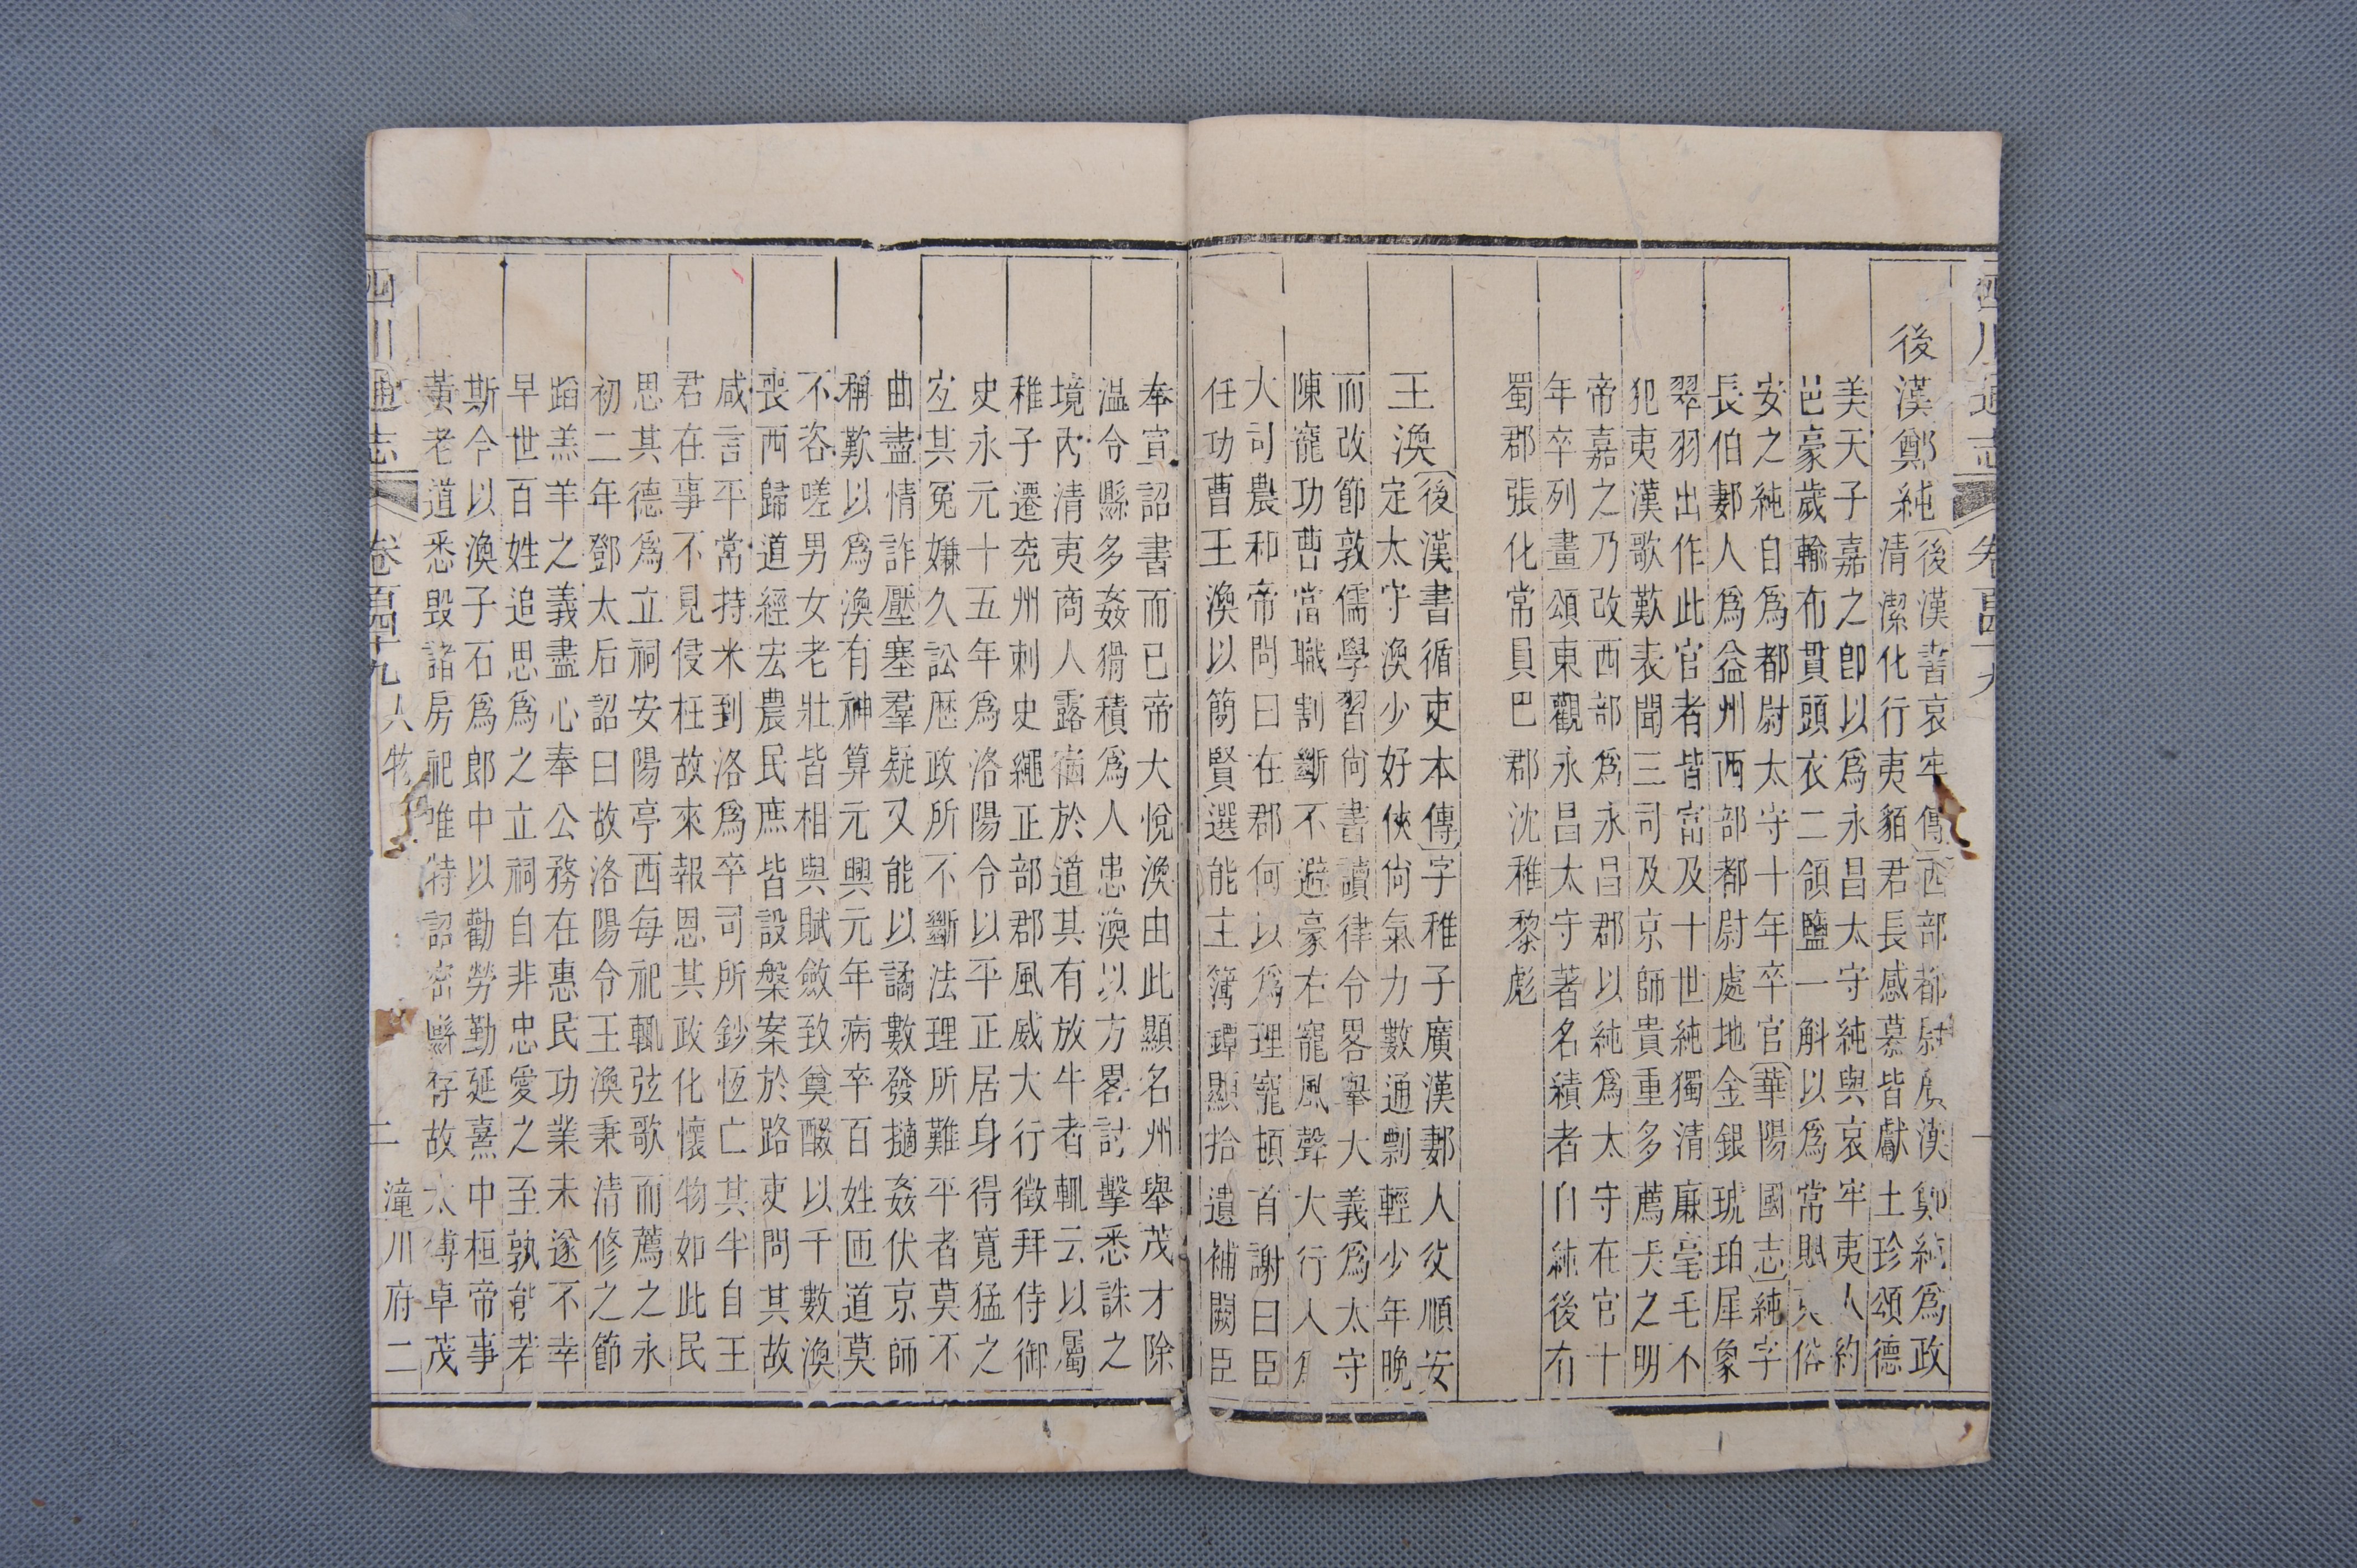 四川通志
卷百四十九
後漢鄭純〔後漢書哀牢傳〕西部都尉廣漢鄭純爲政
清潔化行夷貊君長感慕皆獻土珍頌德
美天子嘉之卽以爲永昌太守純與哀牢夷人約
邑豪歲輸布貫頭衣二領鹽一斛以爲常賦夷俗
安之純自爲都尉太守十年卒官〔華陽國志〕純字
長伯郪人爲益州西部都尉處地金銀琥珀犀象
翠羽出作此官者皆富及十世純獨清廉毫毛不
犯夷漢歌歎表聞三司及京師貴重多薦美之明
帝嘉之乃改西部爲永昌郡以純爲太守在官十
年卒列畫頌東觀永昌太守著名績者自純後有
蜀郡張化常員巴郡沈稚黎彪
王渙〔後漢書循吏本傳〕字稚子廣漢郪人父順安
定太守渙少好俠尙氣力數通剽輕少年晚
而改節敦儒學習尙書讀律令畧舉大義爲太守
陳寵功曹當職割斷不避豪右寵風聲大行入爲
大司農和帝問曰在郡何以爲理寵頓首謝曰臣
任功曹王渙以簡賢選能主簿鐔顯拾遺補闕臣
奉宣詔書而已帝大悅渙由此顯名州舉茂才除
溫令縣多姦猾積爲人患渙以方畧討擊悉誅之
境內淸夷商人露宿於道其有放牛者輒云以屬
稚子遷兗州刺史繩正部郡風威大行徵拜侍御
史永元十五年爲洛陽令以平正居身得寬猛之
宜其冤嫌久訟歷政所不斷法理所難平者莫不
曲盡情詐壓塞羣疑又能以譎數發擿姦伏京師
稱歎以爲渙有神算元興元年病卒百姓匝道莫
不咨嗟男女老壯皆相與賦斂致奠醊以千數渙
喪西歸道經宏農民庶皆設槃案於路吏問其故
咸言平常持米到洛爲卒司所鈔恆亡其半自王
君在事不見侵枉故來報恩其政化懷物如此民
思其德爲立祠安陽亭西每祀輒弦歌而薦之永
初二年鄧太后詔曰故洛陽令王渙秉清修之節
蹈羔羊之義盡心奉公務在惠民功業未遂不幸
早世百姓追思爲之立祠自非忠愛之至孰能若
斯今以渙子石爲郎中以勸勞勤延熹中桓帝事
黃老道悉毀諸房祀唯特詔密縣存故太傅卓茂
四川通志
卷百四十九
人物
二
潼川府二